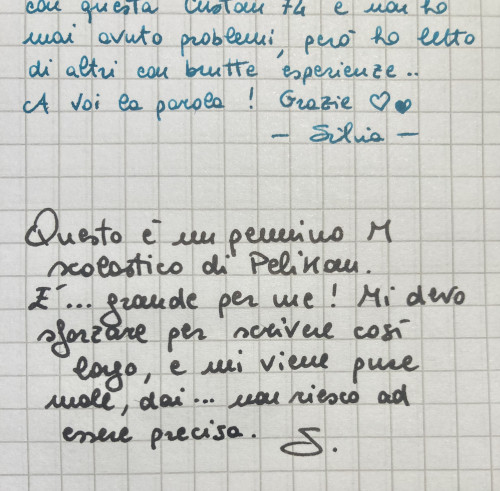 con questa Custom 74 e non ho
mai avuto problemi, però ho letto
di altri con brutte esperienze..
A voi la parola! Grazie ♡♥
- Silvia -
Questo è un pennino M
scolastico di Pelikan.
E'... grande per me! Mi devo
sforzare per scrivere così
largo, e mi viene pure
male, dai... non riesco ad
essere precisa. S.